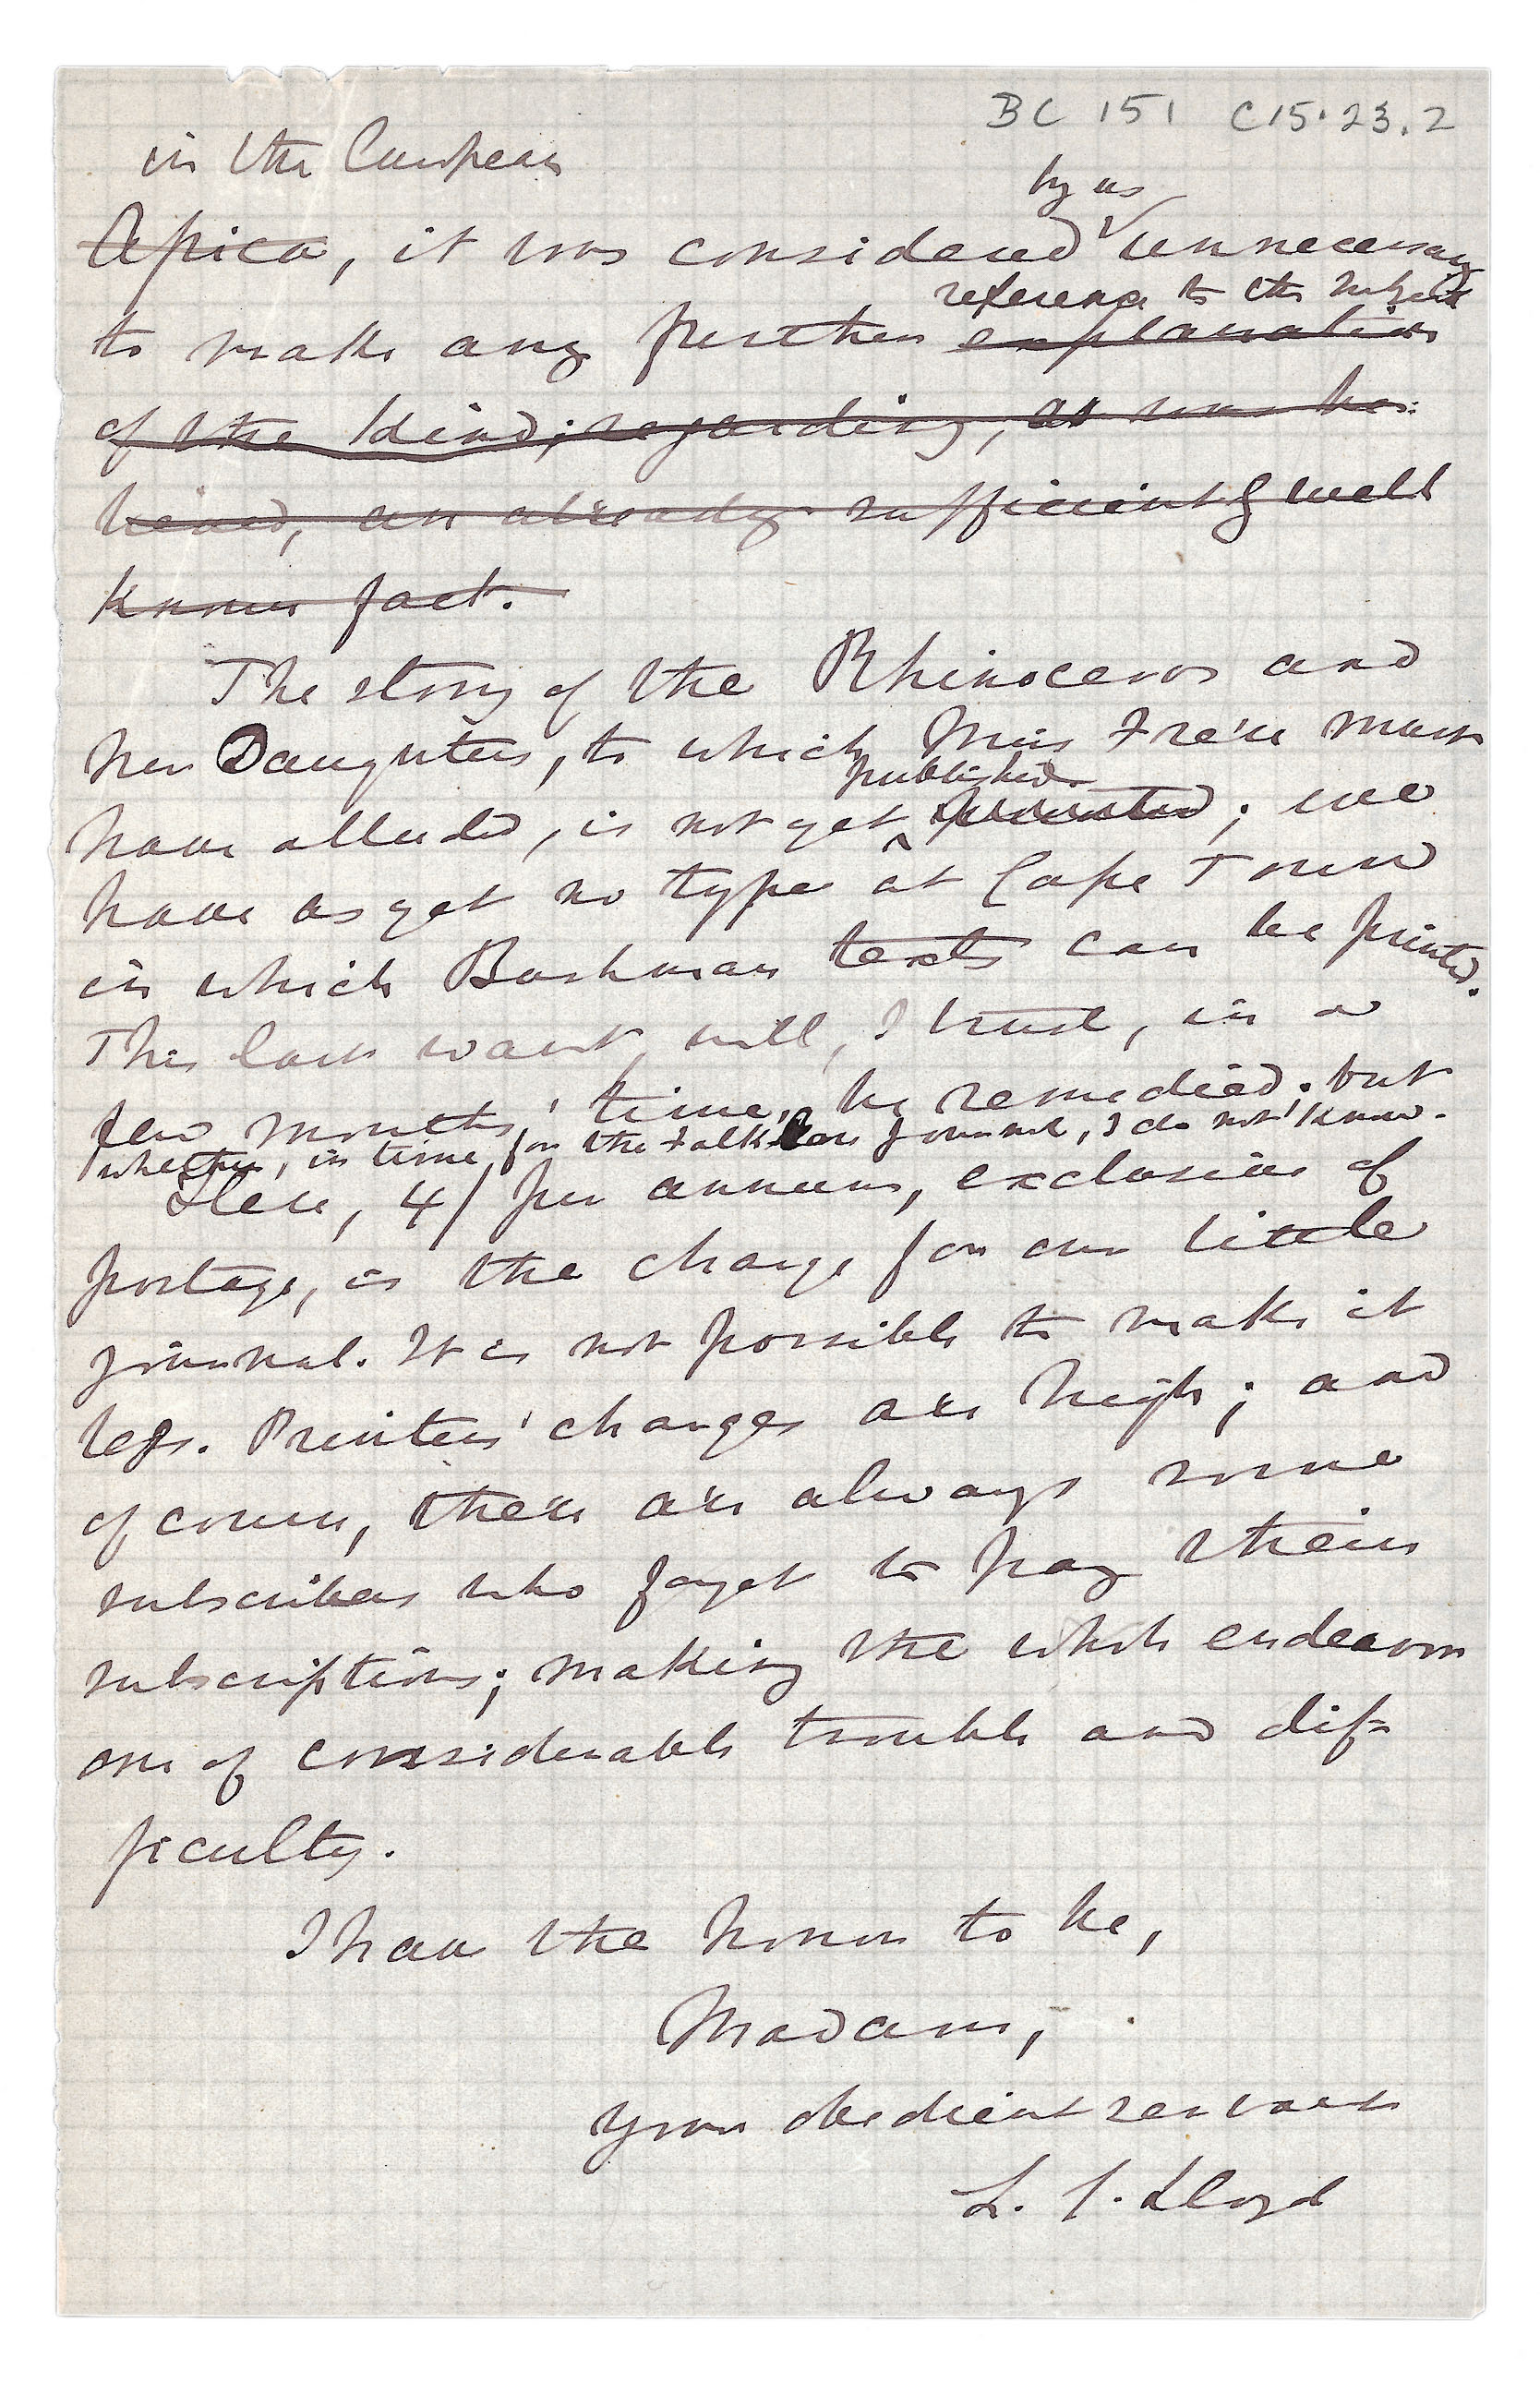 BC 151 C15.23.2
in the European
by us
Africa, it was considered unnecessary
reference to the subject
to make any further explanation
of the kind; regarding, as was be:
lieved, an already sufficiently well
known fact.
The story of the Rhinoceros and
her Daughters, to which Miss Frere must
published
have alluded, is not yet printed; we
have as yet no type at Cape Town
in which Bushman texts can be printed.
This last want, will, I trust, in a
few months' time, be remedied. but
whether, in time for the Folklore Journal, I do not know.
Here, 4/ per annum, exclusive of
postage, is the charge for our little
journal. It is not possible to make it
less. Printers' charges are high; and
of course, there are always some
subscribers who forget to pay their
subscriptions; making the whole endeavour
one of considerable trouble and dif=
ficulty.
I have the honour to be,
Madam,
your obedient servant
L. C. Lloyd